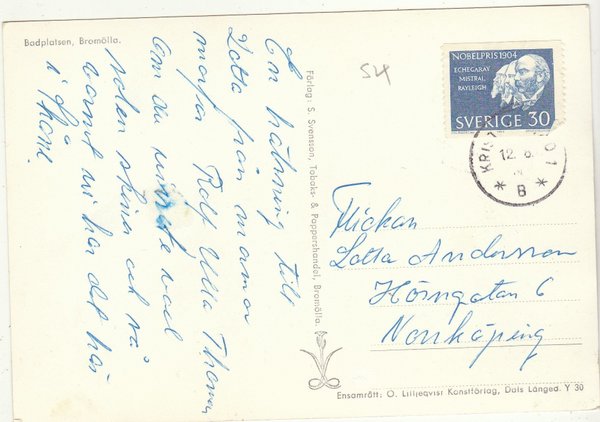 Badplatsen, Bromölla.
En hälsning till
Lotta från mormor
Rolf Ulla Thomas
Om du visste vad
solen skina och så
varmt vi har det här
i
Förlag: S. Svensson, Tobaks- & Pappershandel, Bromölla.
54
NOBELPRIS 1904
ECHEGARAY
MISTRAL
RAYLEIGH
SVERIGE 30
KRIS
12. 8.
B
Flickan
Lotta Andersson
Hörngatan 6
Norrköping
Ensamrätt: O. Lilljeqvist Konstförlag, Dals Långed. Y 30